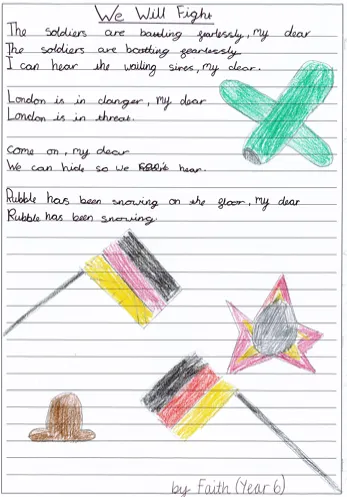 We Will Fight
The soldiers are battling fearlessly, my dear
The soldiers are battling fearlessly.
I can hear the wailing sires, my dear.
London is in danger, my dear
London is in threat.
Come on, my dear
We can hide so we hear.
Rubble has been snowing on the floor, my dear
Rubble has been snowing.
by Faith (Year 6)